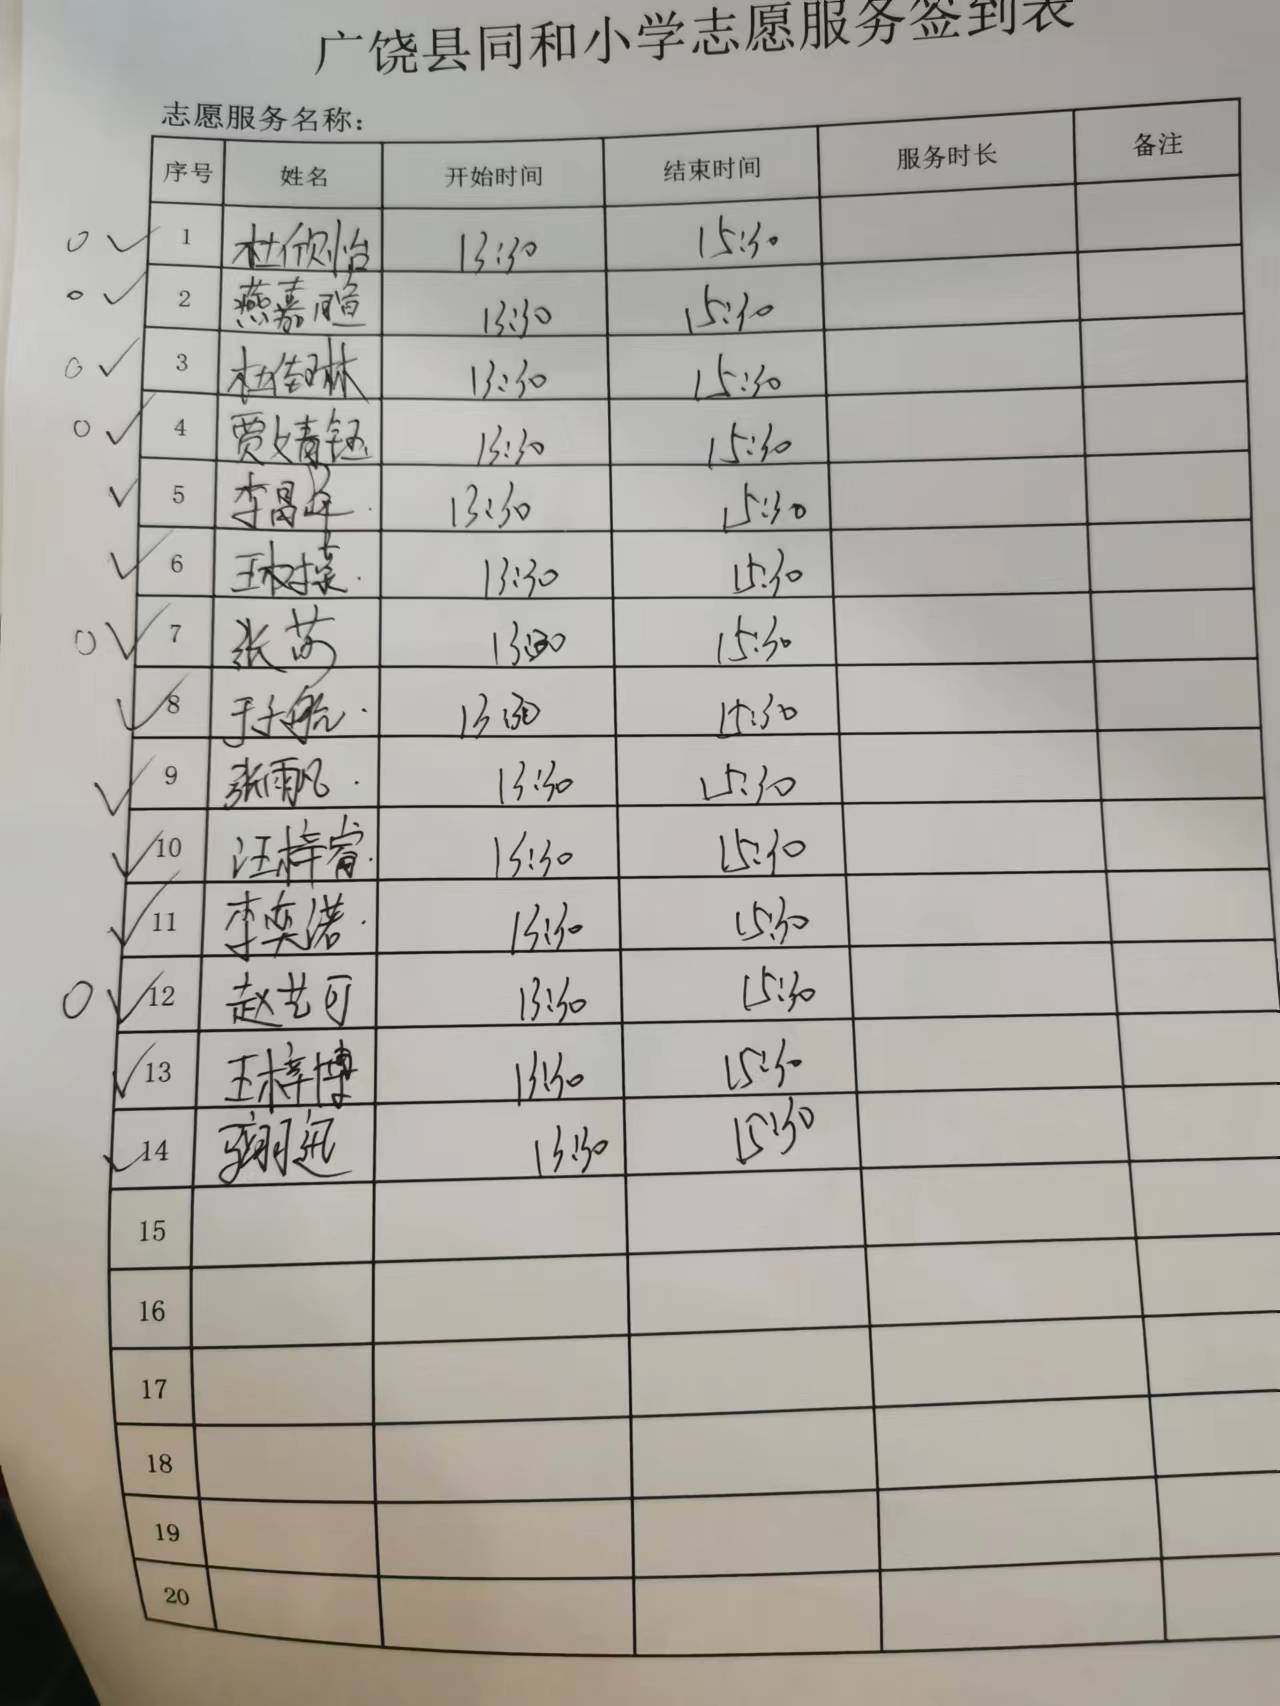 广饶县同和小学志愿服务签到表
志愿服务名称：
序号 姓名 开始时间 结束时间 服务时长 备注
1 杜欣怡 13:30 15:30
2 燕嘉暄 13:30 15:30
3 杜佳琳 13:30 15:30
4 贾文青钰 13:30 15:30
5 李昌 13:30 15:30
6 王 13:30 15:30
7 张 13:30 15:30
8 于子航 13:30 15:30
9 张雨凡 13:30 15:30
10 汪梓睿 13:30 15:30
11 李奕诺 13:30 15:30
12 赵艺可 13:30 15:30
13 王梓博 13:30 15:30
14 13:30 15:30
15
16
17
18
19
20